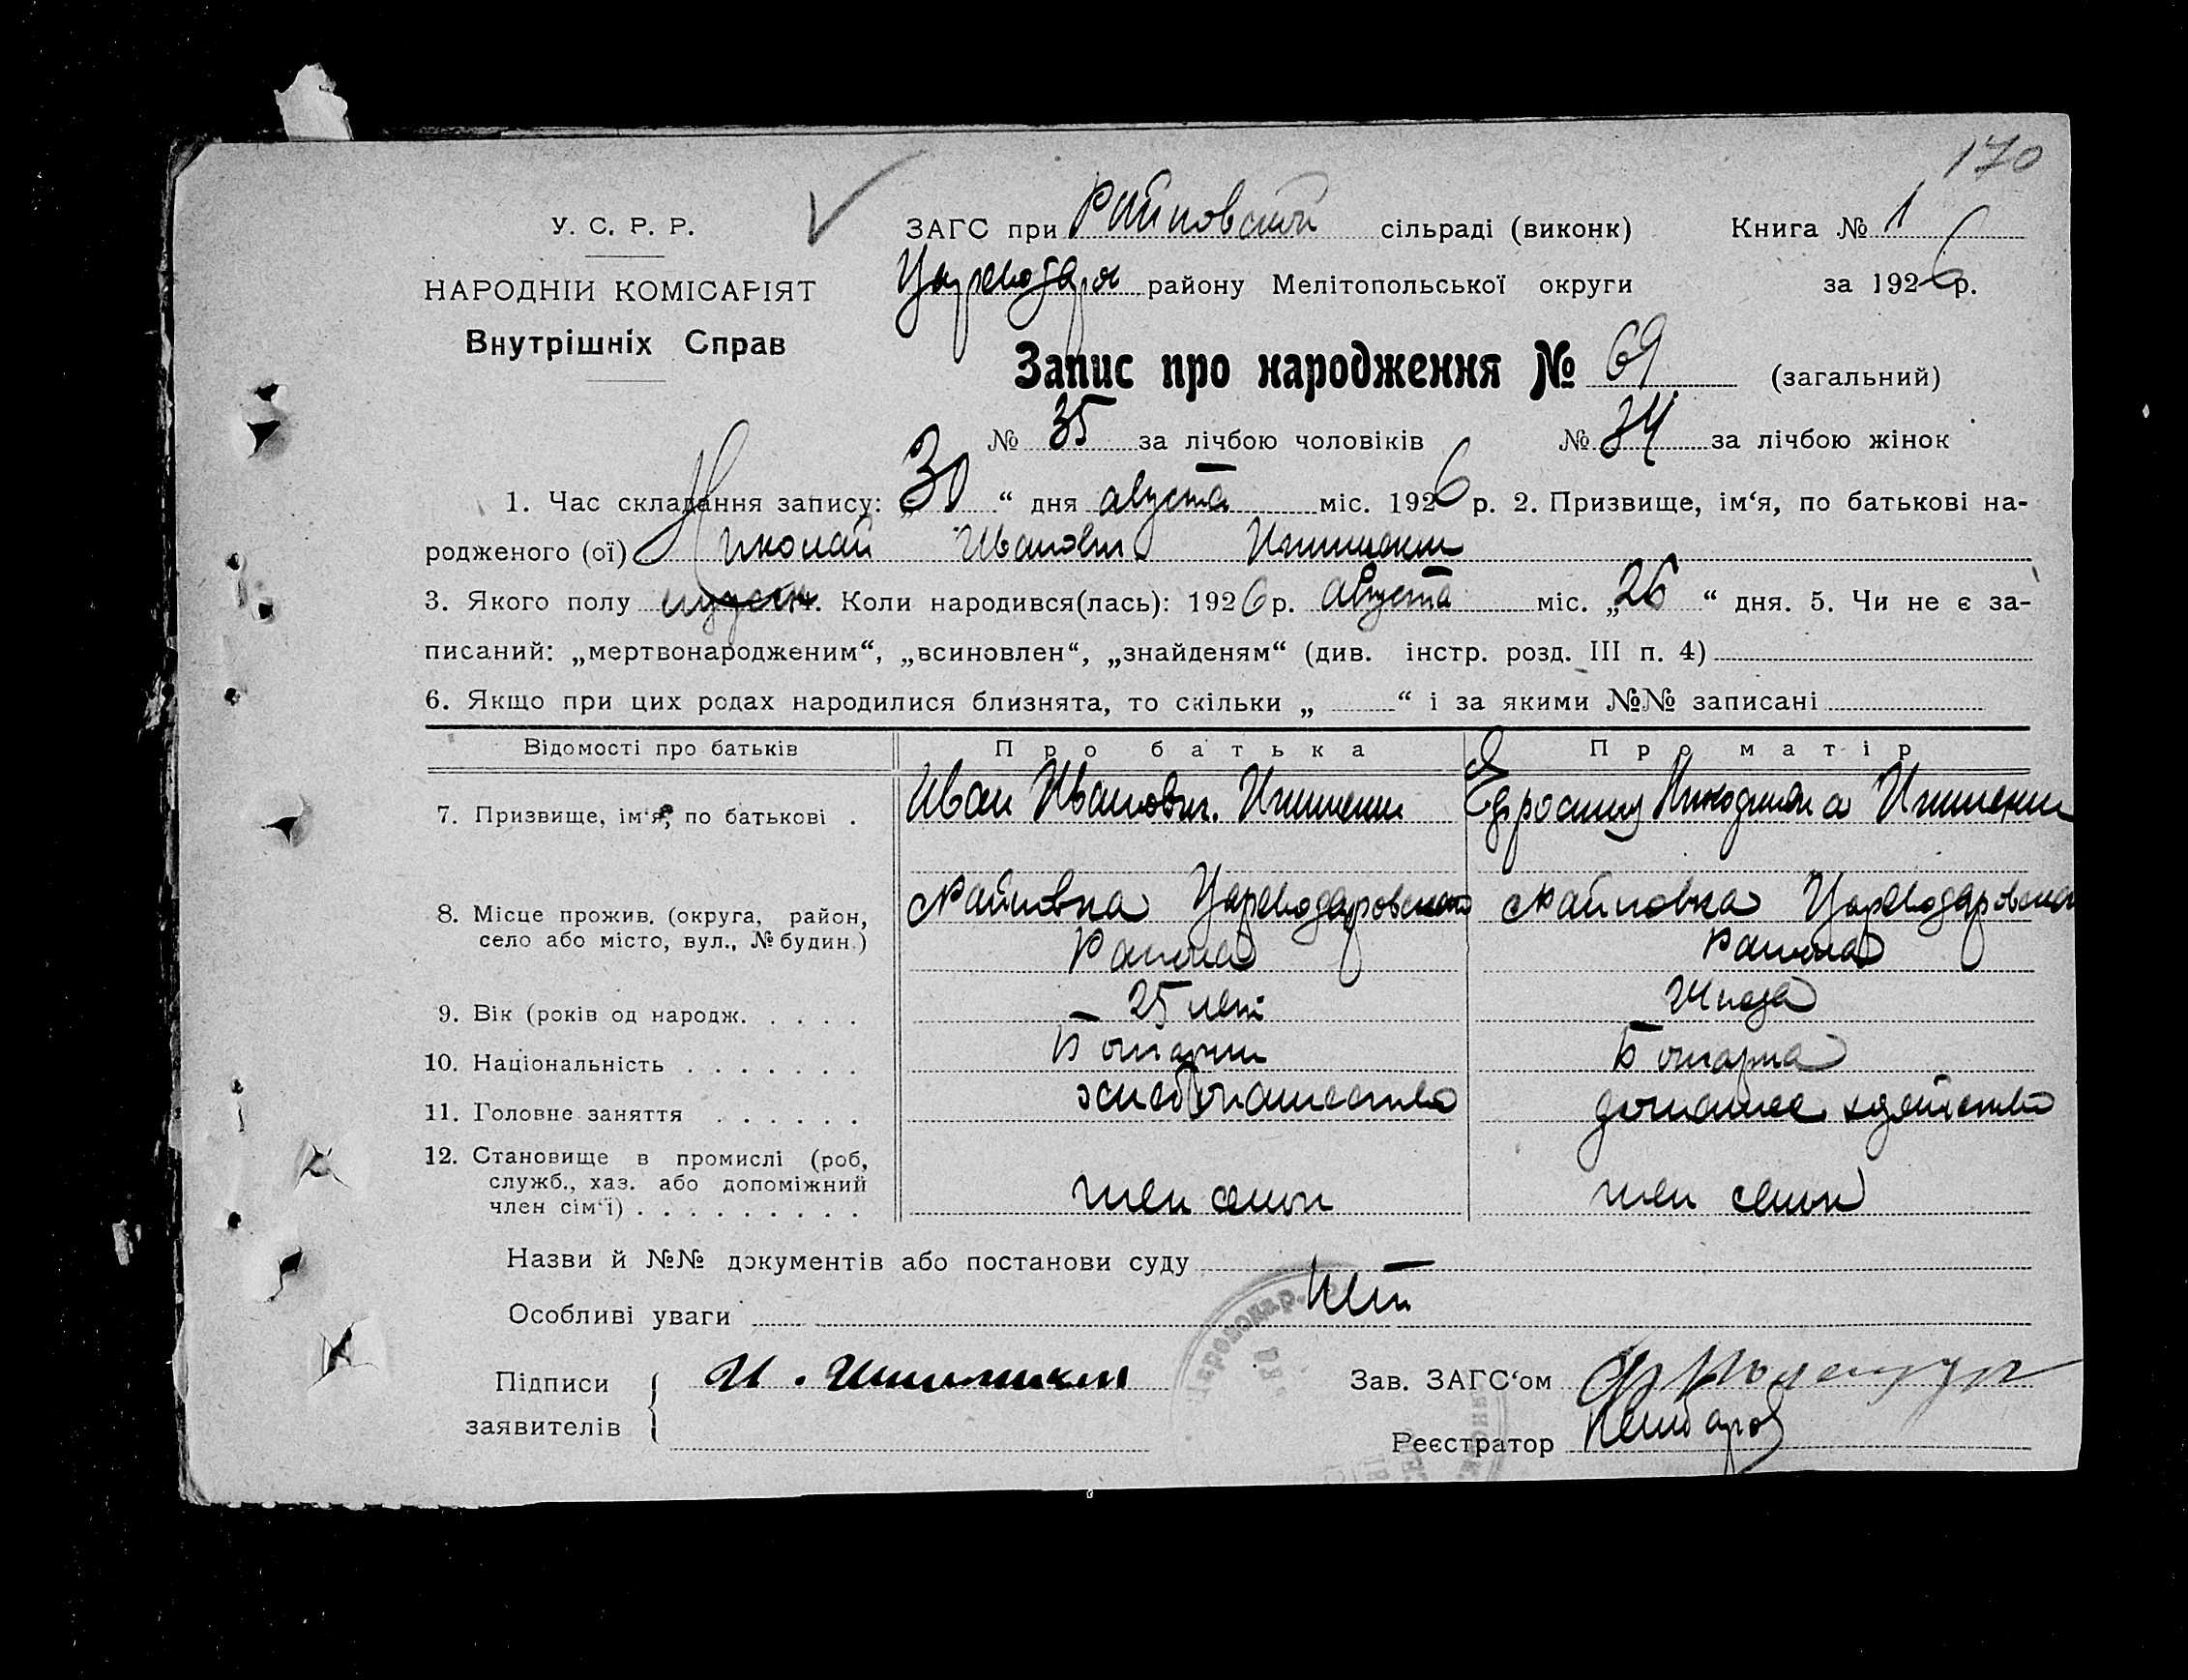 170
У. С. Р. Р.
НАРОДНІЙ КОМІСАРІЯТ
Внутрішніх Справ
ЗАГС при Райновской сільраді (виконк) Книга № 1
району Мелітопольської округи за 1926 р.
Запис про народження № 69 (загальний)
№ 35 за лічбою чоловіків № 34 за лічбою жінок
1. Час складання запису: „30“ дня августа міс. 1926 р. 2. Призвище, ім‘я, по батькові на-
родженого (ої) Николай Иванович
3. Якого полу мужск. Коли народився(лась): 1926 р. августа міс. „26“ дня. 5. Чи не є за-
писаний: „мертвонародженим“, „всиновлен“, „знайденям“ (див. інстр. розд. III п. 4)
6. Якщо при цих родах народилися близнята, то скільки „ “ і за якими №№ записані
Відомості про батьків Про батька Про матір
7. Призвище, ім‘я, по батькові . Иван Иванович
8. Місце прожив. (округа, район, с Райновка Цареводаровского с Райновка Цареводаровского
село або місто, вул., № будин.) Района Района
9. Вік (років од народж. . . . . 25 лет 24 года
10. Національність . . . . . . . Болгарин Болгарка
11. Головне заняття . . . . . . хлебопашество домашнее хозяйство
12. Становище в промислі (роб,
служб., хаз. або допоміжний
член сім‘ї) . . . . . . . . . член семьи член семьи
Назви й №№ документів або постанови суду
Особливі уваги Нет
Підписи
заявителів
Зав. ЗАГС‘ом
Реєстратор